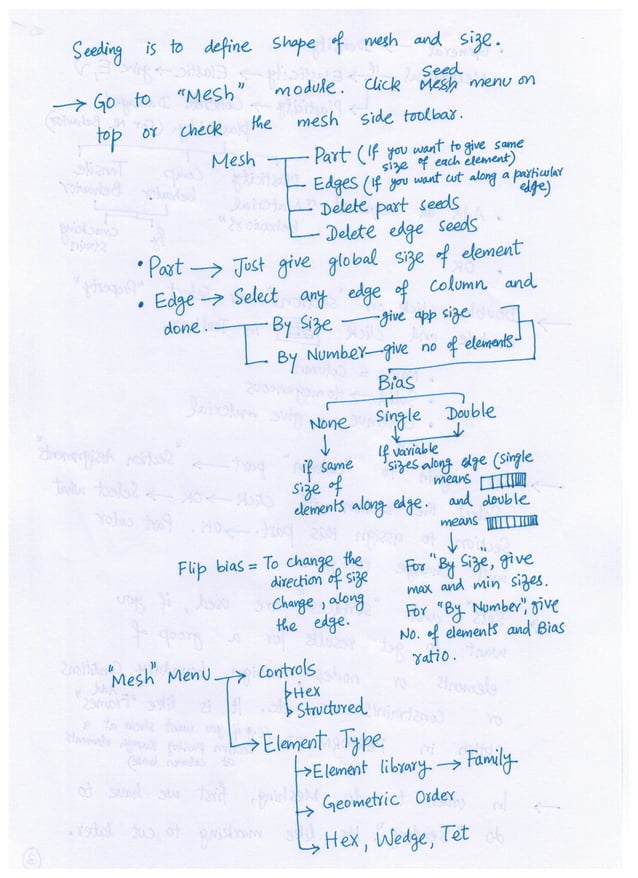 Seeding is to define shape of mesh and size.
→ Go to "Mesh" module. Click Seed Mesh menu on
top or check the mesh side toolbar.
Mesh Part (If you want to give same
size of each element)
Edges (If you want cut along a particular
edge)
Delete part seeds
Delete edge seeds
• Part → Just give global size of element
• Edge → Select any edge of column and
done By Size give app size
By Number give no of elements
Bias
None Single Double
if same
size of
elements along edge
If variable
sizes along edge (single
means
and double
means
Flip bias = To change the
direction of size
change, along
the edge.
For "By Size", give
max and min sizes.
For "By Number", give
No. of elements and Bias
ratio.
"Mesh" Menu → Controls
Hex
Structured
→ Element Type
→ Element library → Family
→ Geometric Order
→ Hex, Wedge, Tet